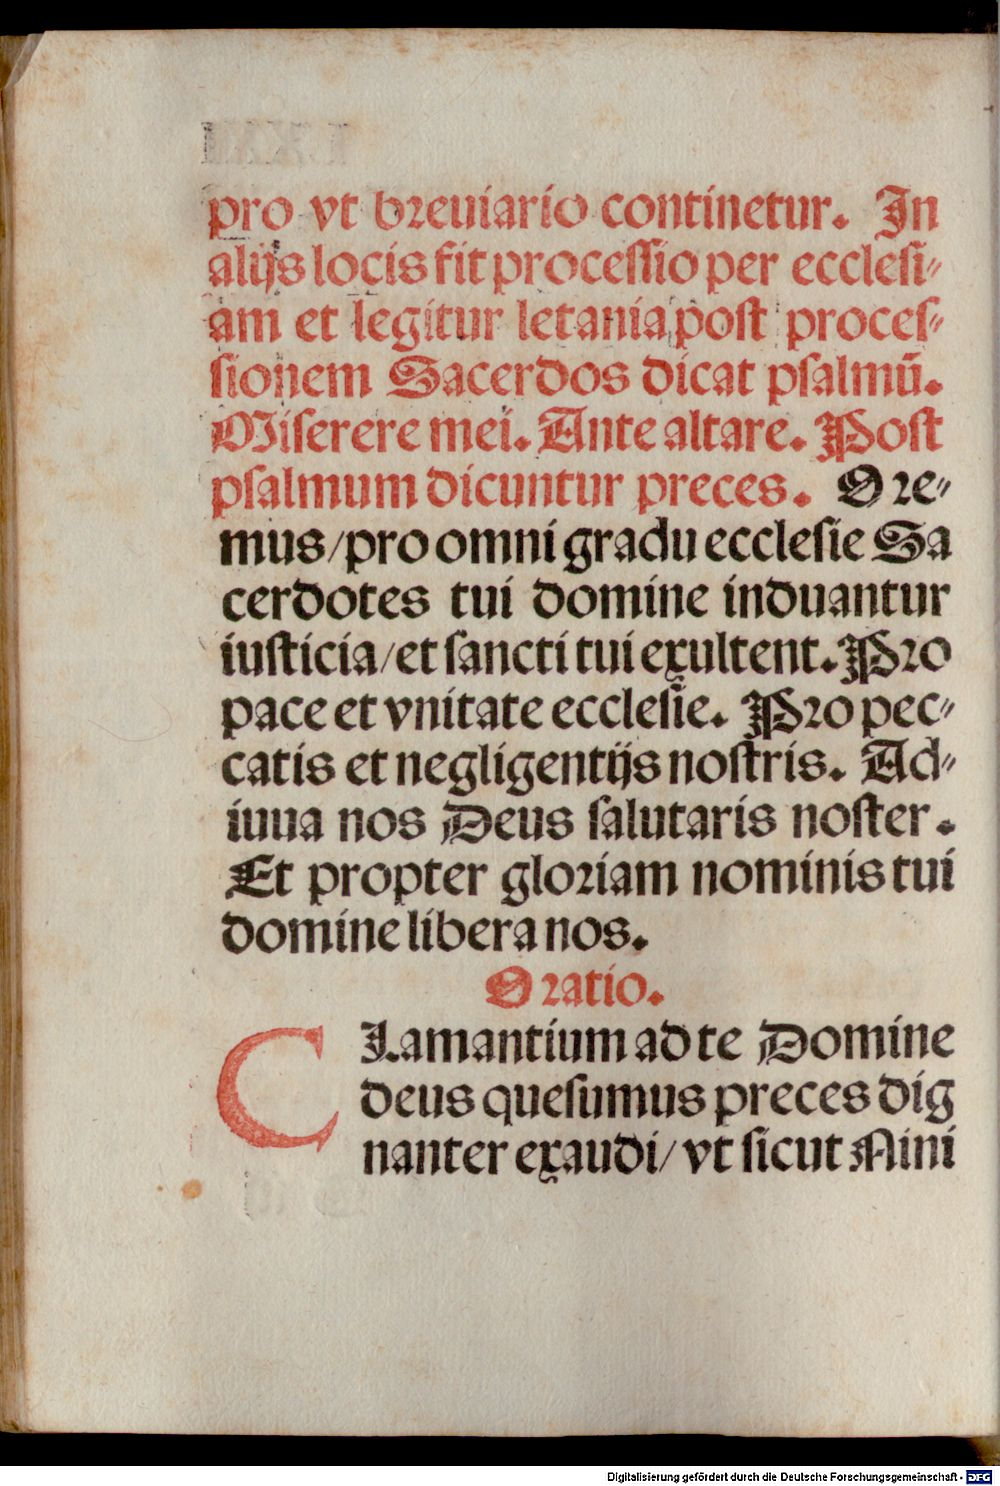 pro vt breuiario continetur. In
alijs locis fit processio per ecclesi⸗
am et legitur letania post proces⸗
sionem Sacerdos dicat psalmū.
Miserere mei. Ante altare. Post
psalmum dicuntur preces. Ore⸗
mus/pro omni gradu ecclesie Sa
cerdotes tui domine induantur
iusticia/et sancti tui exultent. Pro
pace et vnitate ecclesie. Pro pec⸗
catis et negligentijs nostris. Ad⸗
iuua nos Deus salutaris noster.
Et propter gloriam nominis tui
domine libera nos.
Oratio.
CLamantium ad te Domine
deus quesumus preces dig
nanter exaudi/vt sicut Nini
Digitalisierung gefördert durch die Deutsche Forschungsgemeinschaft - DFG